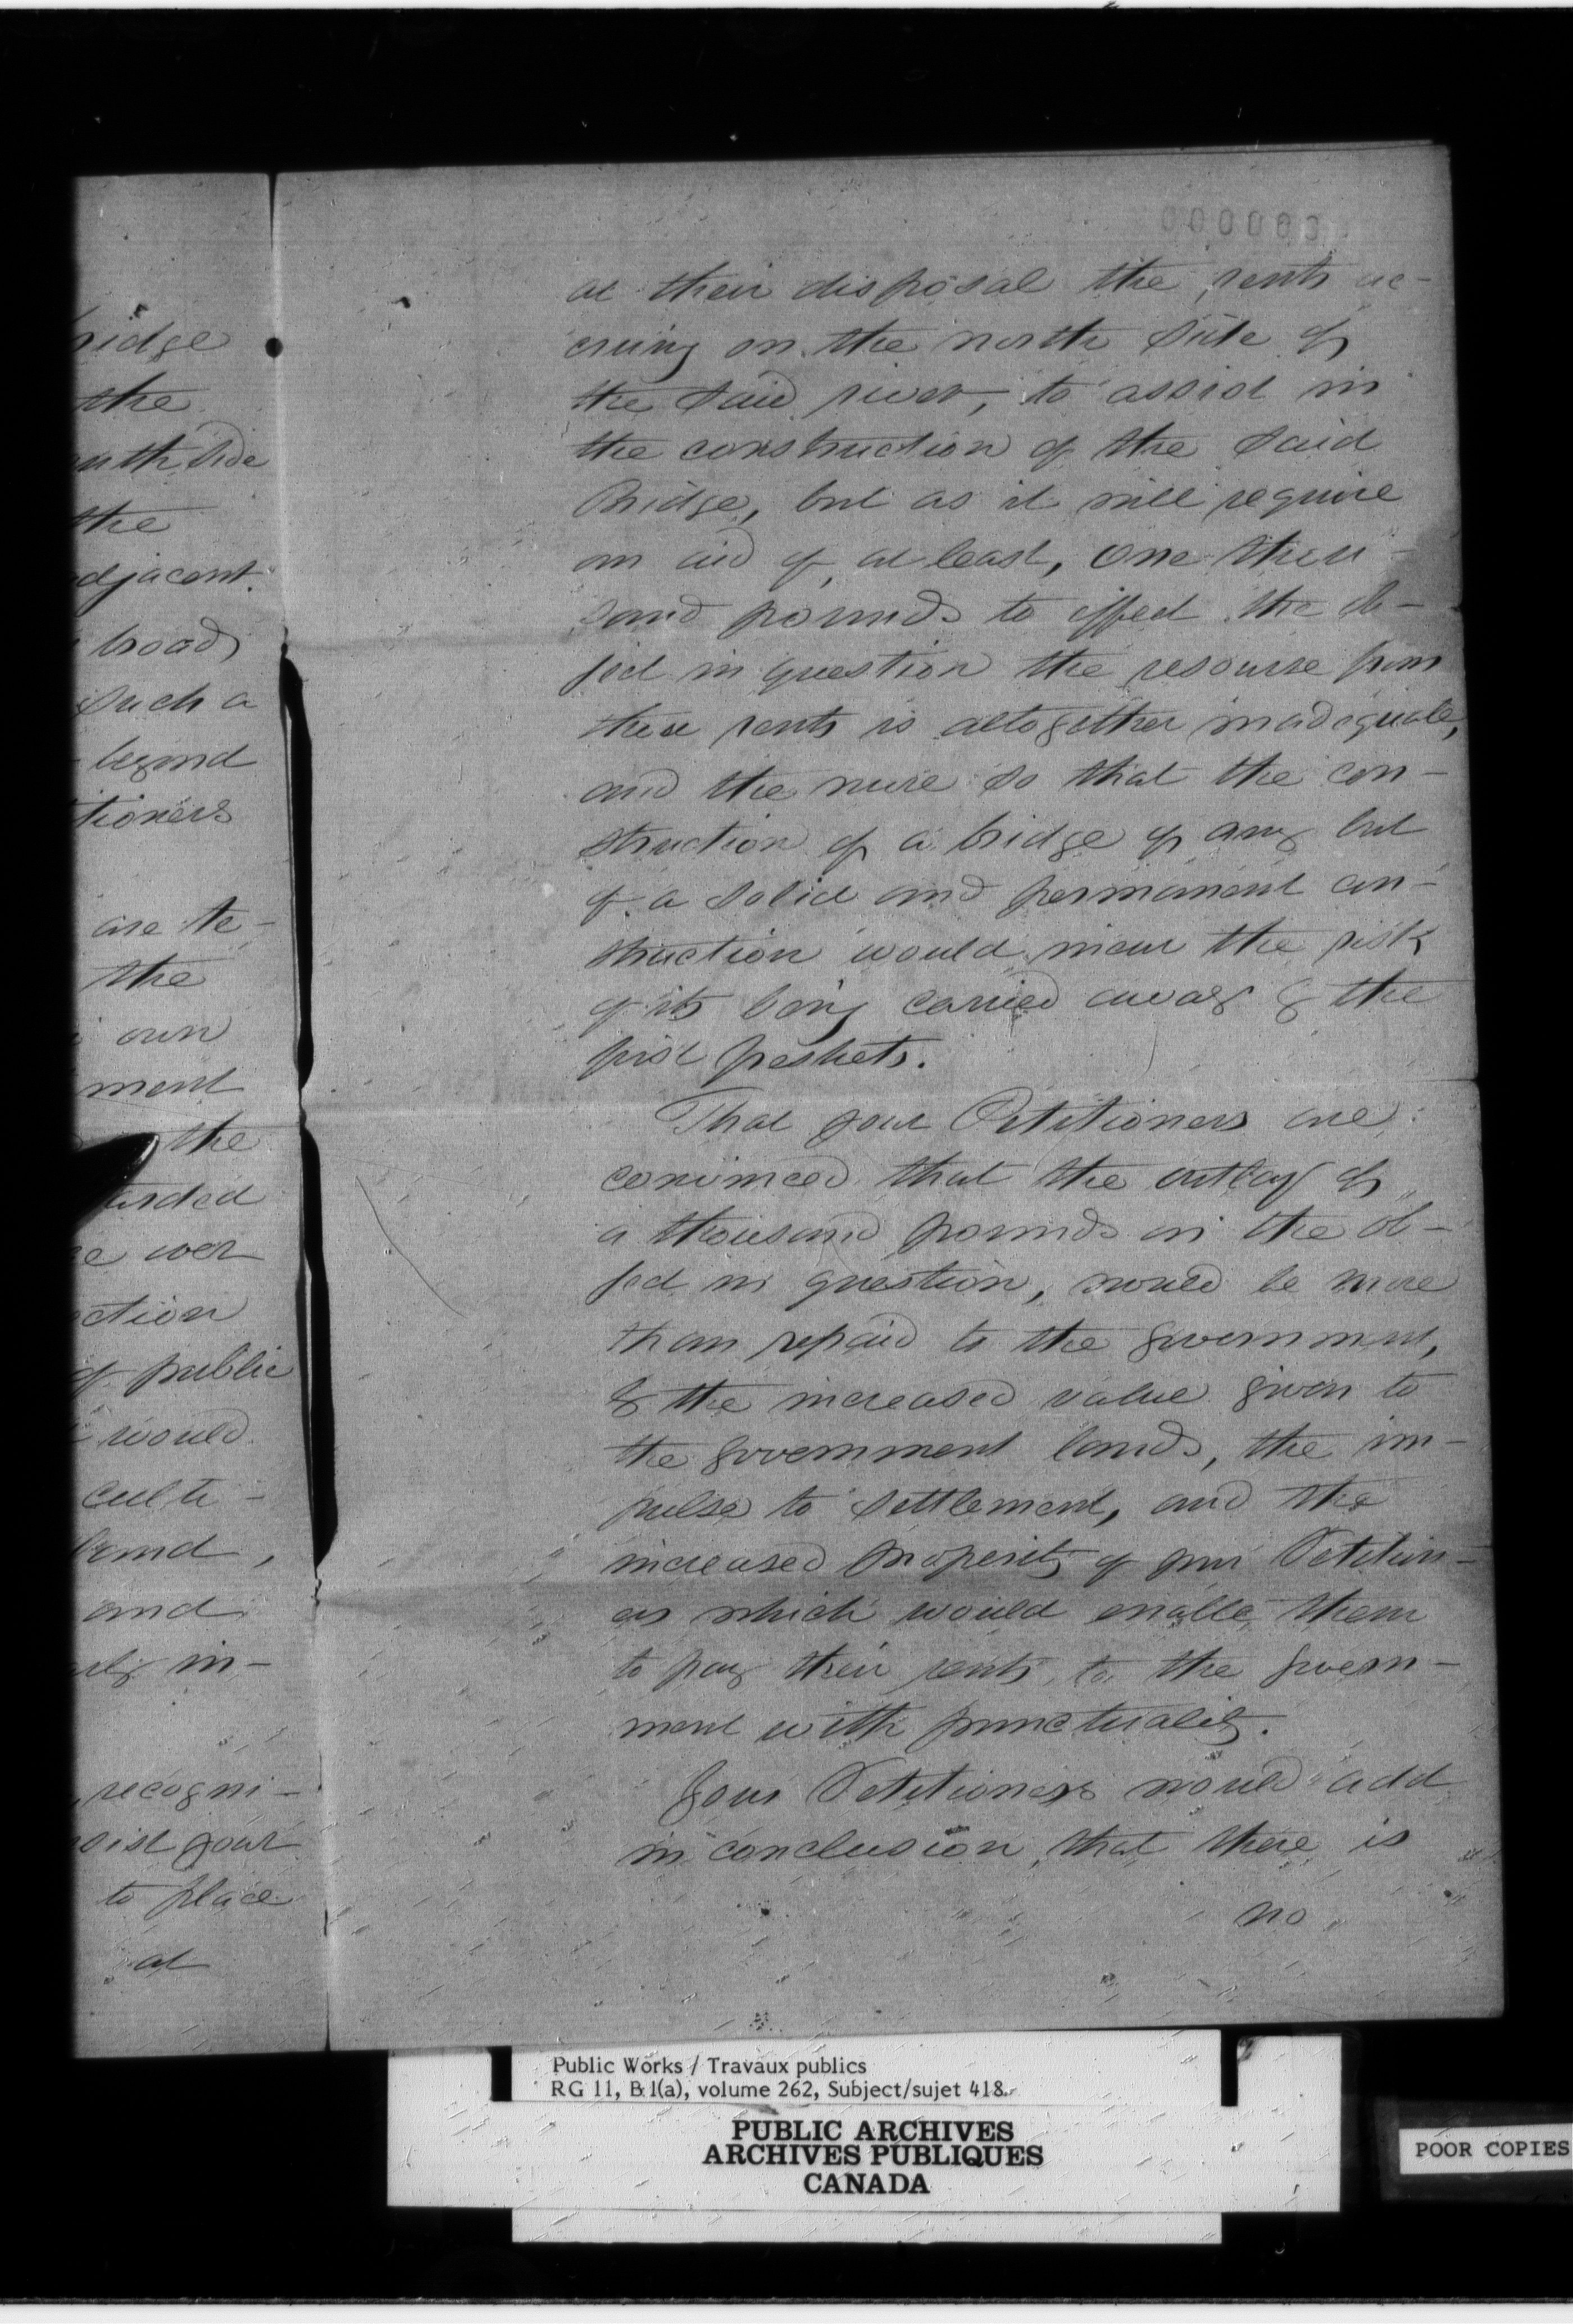 ridge
the
outh side
the
adjacent
broad,
such a
beyond
tioners
are te-
the
own
ment
the
arded
e over
ction
of public
would
culti-
land,
and
rly in-
recogni-
sist your
to place
at
at their disposal the rents ac-
cruing on the north side of
the said river, to assist in
the construction of the said
Bridge, but as it will require
an aid of, at least, one thou-
sand pounds to effect the ob-
ject in question the resourse from
these rents is altogether inadequate,
and the more so that the con-
struction of a bridge of any but
of a solid and permanent con-
struction would incur the risk
of its being carried away by the
first freshets.
That your Petitioners are
convinced that the outlay of
a thousand pounds in the ob-
ject in question, would be more
than repaid to the government,
by the increased value given to
the government lands, the im-
pulse to settlement, and the
increased prosperity of your Petition-
ers which would enable them
to pay their rents to the govern-
ment with punctuality.
Your Petitioners would add
in conclusion, that there is
no
Public Works / Travaux publics
RG 11, B1(a), volume 262, Subject/sujet 418.
PUBLIC ARCHIVES
ARCHIVES PUBLIQUES
CANADA
POOR COPIES